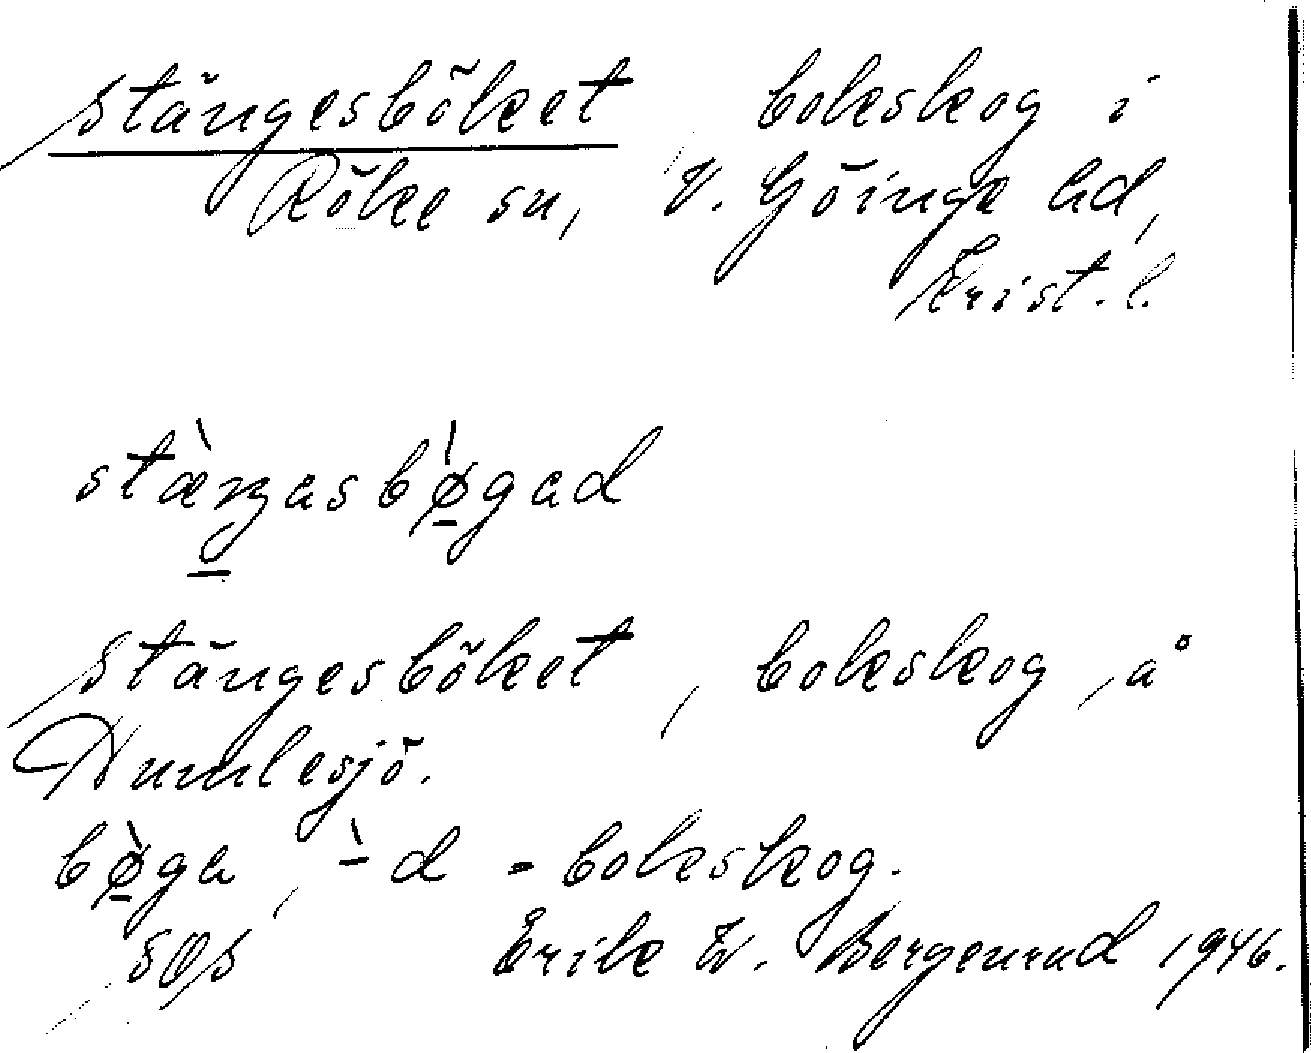 Stängesböket, bokskog i
Röke sn, V. Göinge hd,
Krist. l.
stæ̀ŋasbø̀gad
Stängesböket, bokskog, å
Humlesjö.
bø̀ga, -̀d = bokskog.
SOS Erik W. Bergenrud 1946.